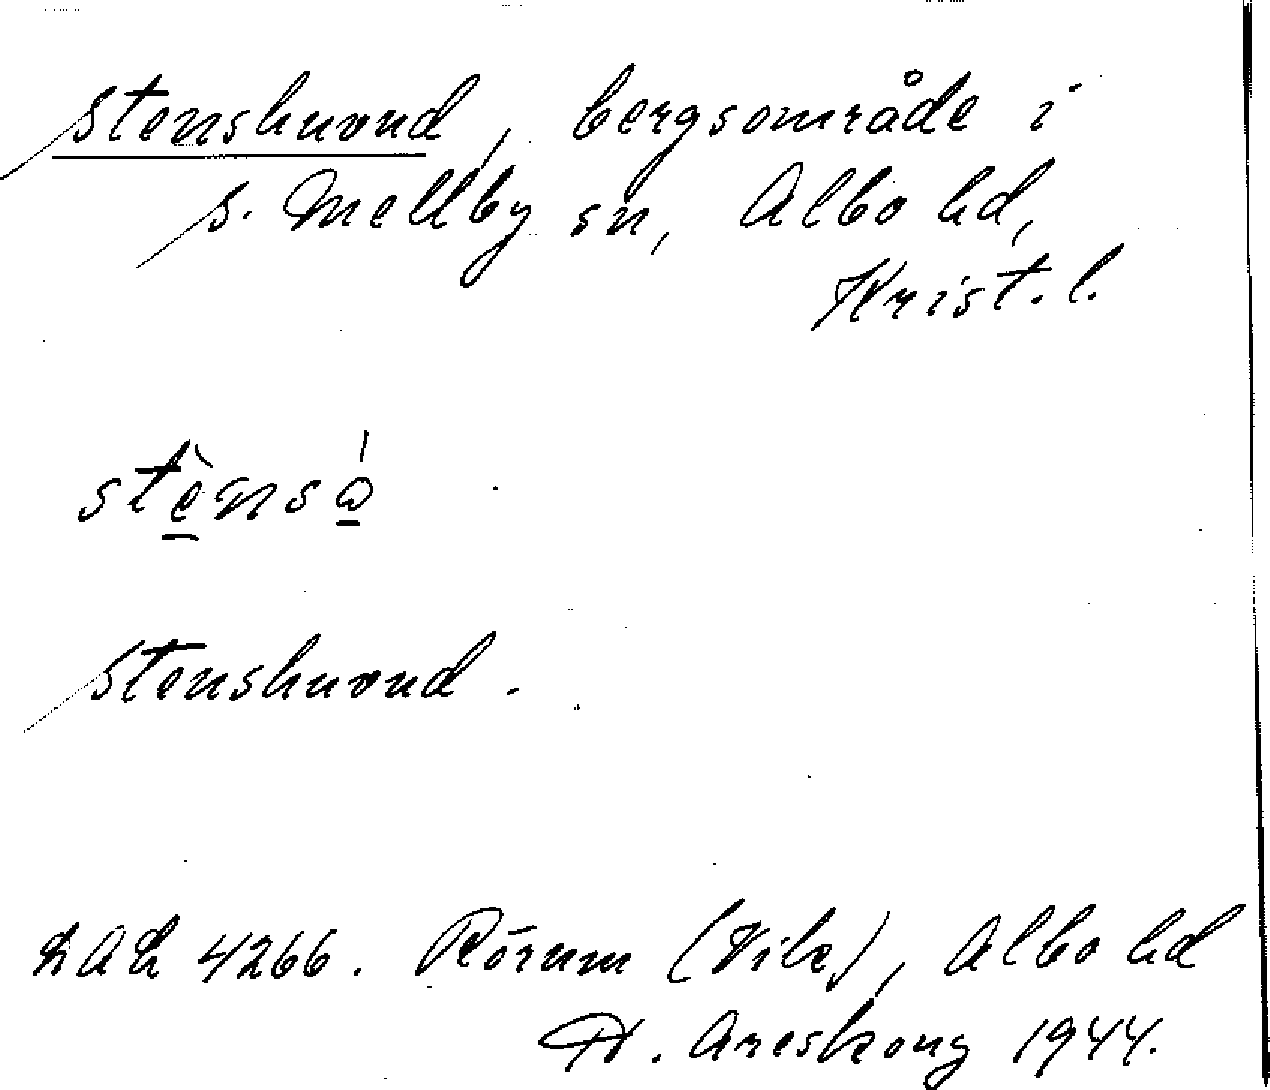 Stenshuvud, bergsområde i
S. Mellby sn, Albo hd,
Krist. l.
stènsó
Stenshuvud.
LAL 4266. Rörum (Vik), Albo hd
H. Areskoug 1944.